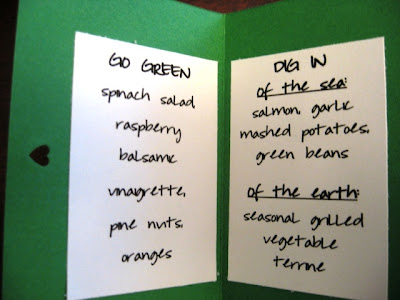 GO GREEN
spinach salad
raspberry
balsamic
vinaigrette,
pine nuts,
oranges
DIG IN
of the sea:
salmon, garlic
mashed potatoes,
green beans
of the earth:
seasonal grilled
vegetable
terrine